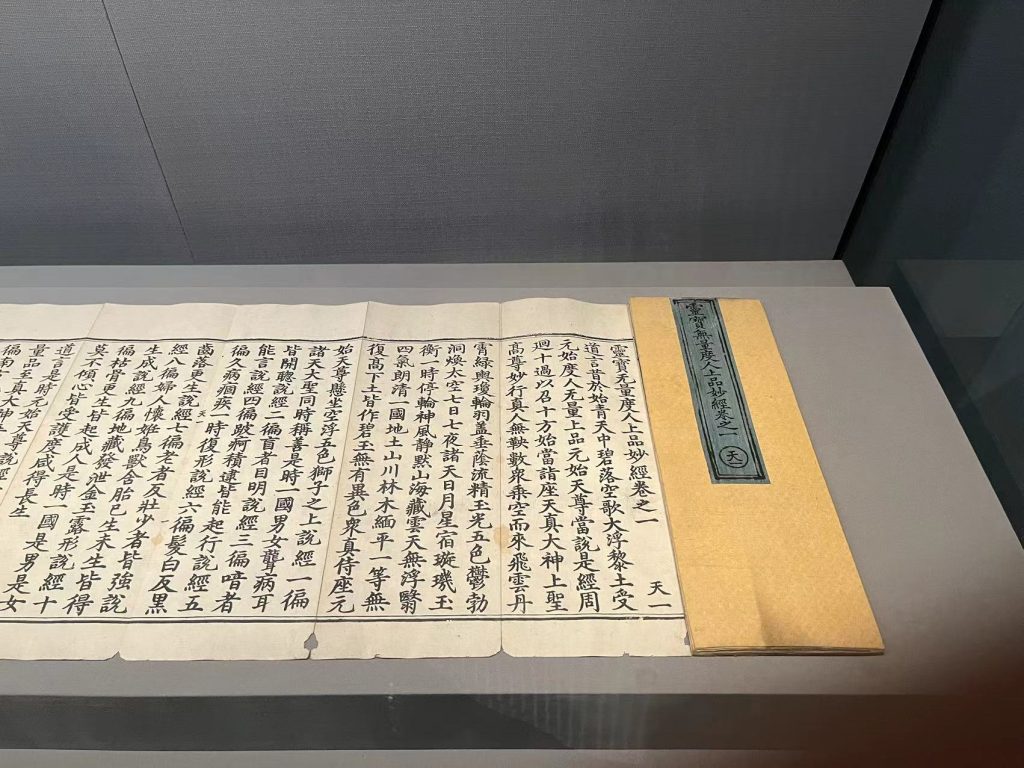 靈寳無量度人上品妙經卷之一
天一
靈寳无量度人上品妙經卷之一 天一
道言昔於始青天中碧落空歌大浮黎土受
元始度人无量上品元始天尊當說是經周
迴十過以召十方始當詣座天真大神上聖
高尊妙行真人無鞅數衆乘空而來飛雲丹
霄緑輿瓊輪羽蓋垂蔭流精玉光五色鬱勃
洞煥太空七日七夜諸天日月星宿璇璣玉
衡一時停輪神風静默山海藏雲天無浮翳
四氣朗清一國地土山川林木緬平一等無
復高下土皆作碧玉無有異色衆真侍座元
始天尊懸坐空浮五色獅子之上說經一徧
諸天大聖同時稱善是時一國男女聾病耳
皆開聰說經二徧盲者目明說經三徧喑者
能言說經四徧跛痾積逮皆能起行說經五
徧久病痼疾一時復形說經六徧髮白反黑
齒落更生說經七徧老者反壯少者皆強說
經八徧婦人懷姙鳥獸含胎已生未生皆得
生成說經九徧地藏發泄金玉露形說經十
徧枯骨更生皆起成人是時一國是男是女
莫不傾心皆受護度咸得長生
道言是時元始天尊說經
量品至真大神
徧南